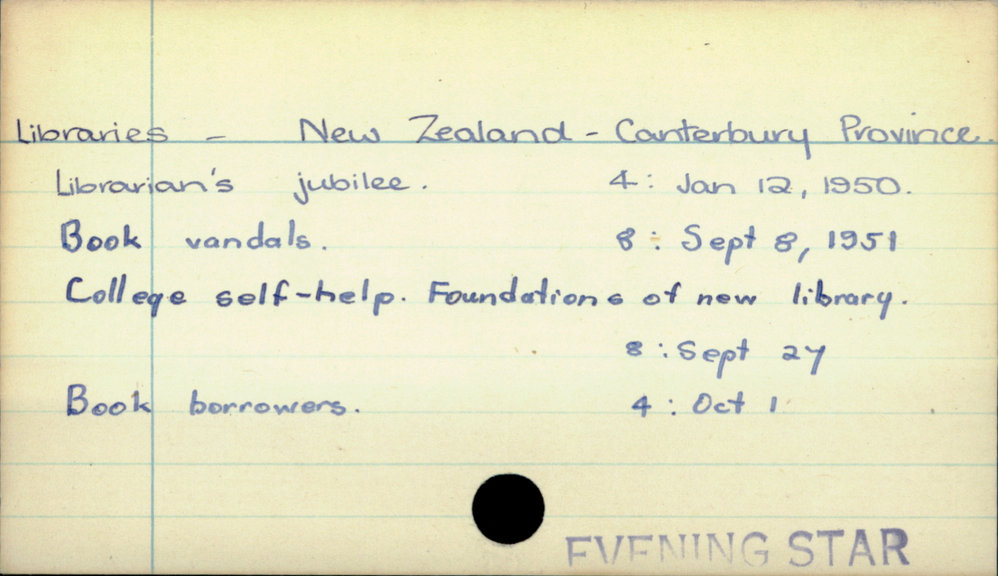 Libraries - New Zealand - Canterbury Province.
Librarian's jubilee. 4: Jan 12, 1950.
Book vandals. 8: Sept 8, 1951
College self-help. Foundations of new library.
8: Sept 27
Book borrowers. 4: Oct 1
EVENING STAR